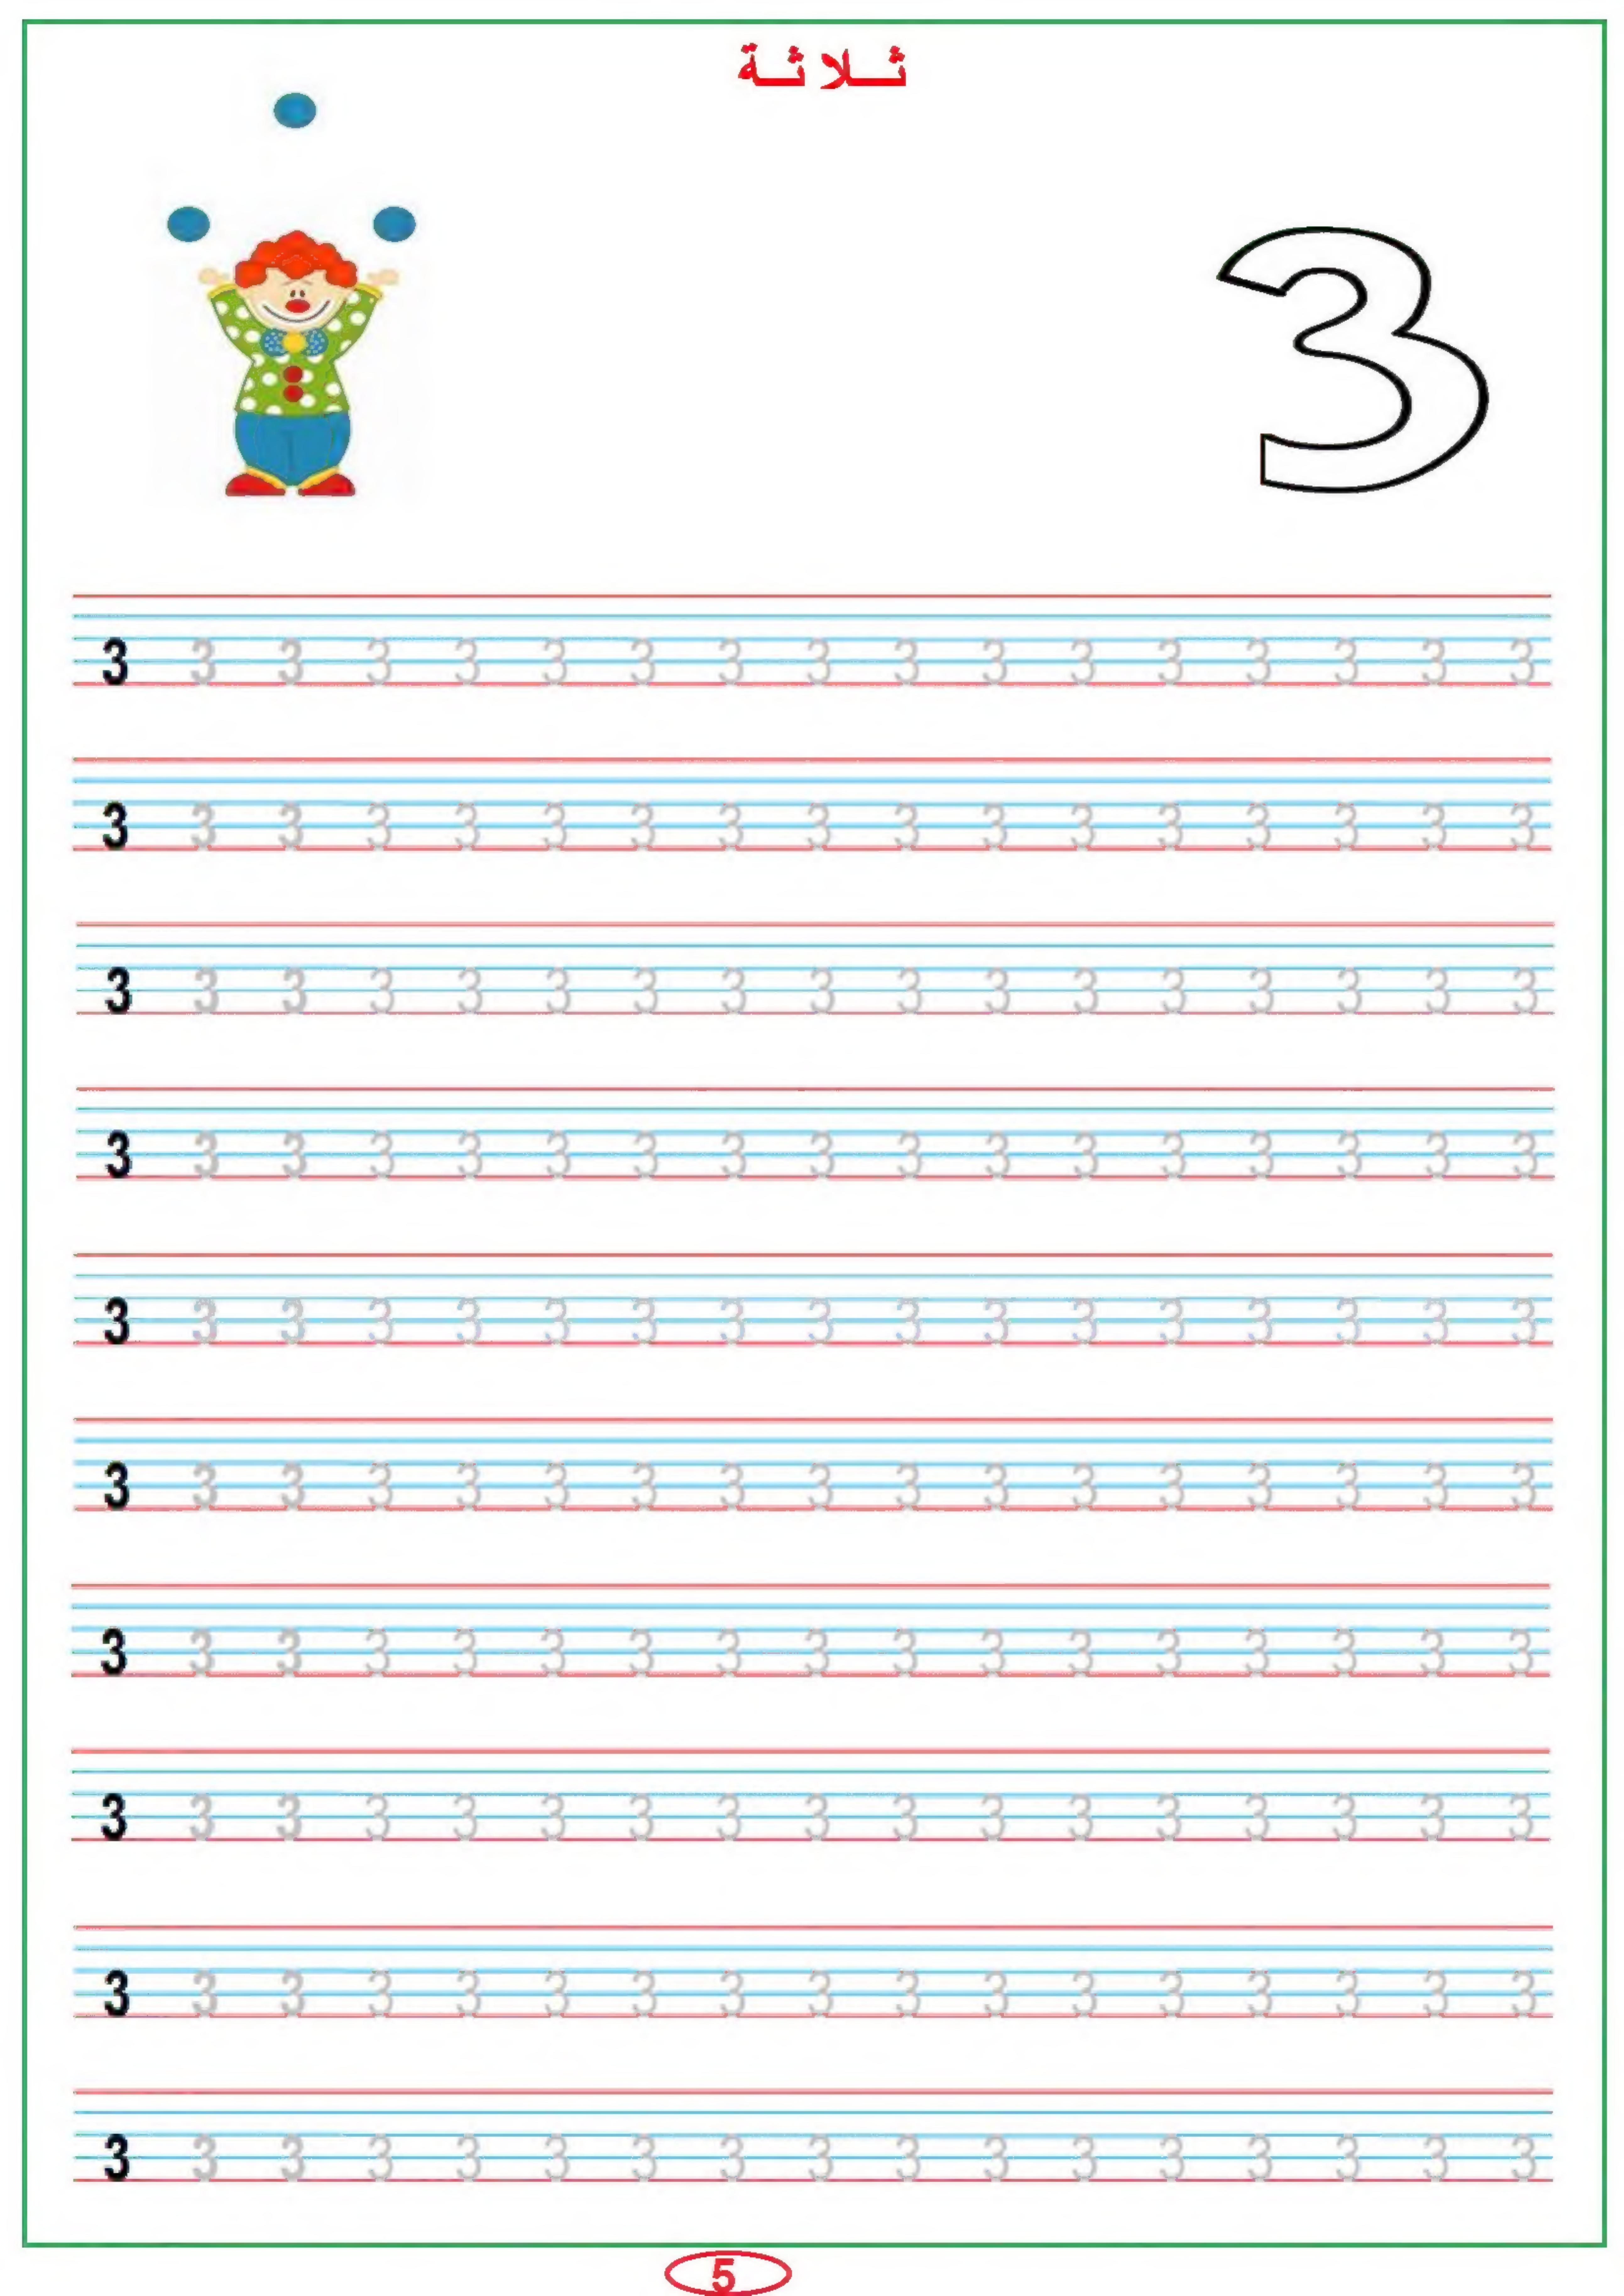 ثلاثة
3
3 3 3 3 3 3 3 3 3 3 3 3 3 3 3 3 3
3 3 3 3 3 3 3 3 3 3 3 3 3 3 3 3 3
3 3 3 3 3 3 3 3 3 3 3 3 3 3 3 3 3
3 3 3 3 3 3 3 3 3 3 3 3 3 3 3 3 3
3 3 3 3 3 3 3 3 3 3 3 3 3 3 3 3 3
3 3 3 3 3 3 3 3 3 3 3 3 3 3 3 3 3
3 3 3 3 3 3 3 3 3 3 3 3 3 3 3 3 3
3 3 3 3 3 3 3 3 3 3 3 3 3 3 3 3 3
3 3 3 3 3 3 3 3 3 3 3 3 3 3 3 3 3
3 3 3 3 3 3 3 3 3 3 3 3 3 3 3 3 3
5